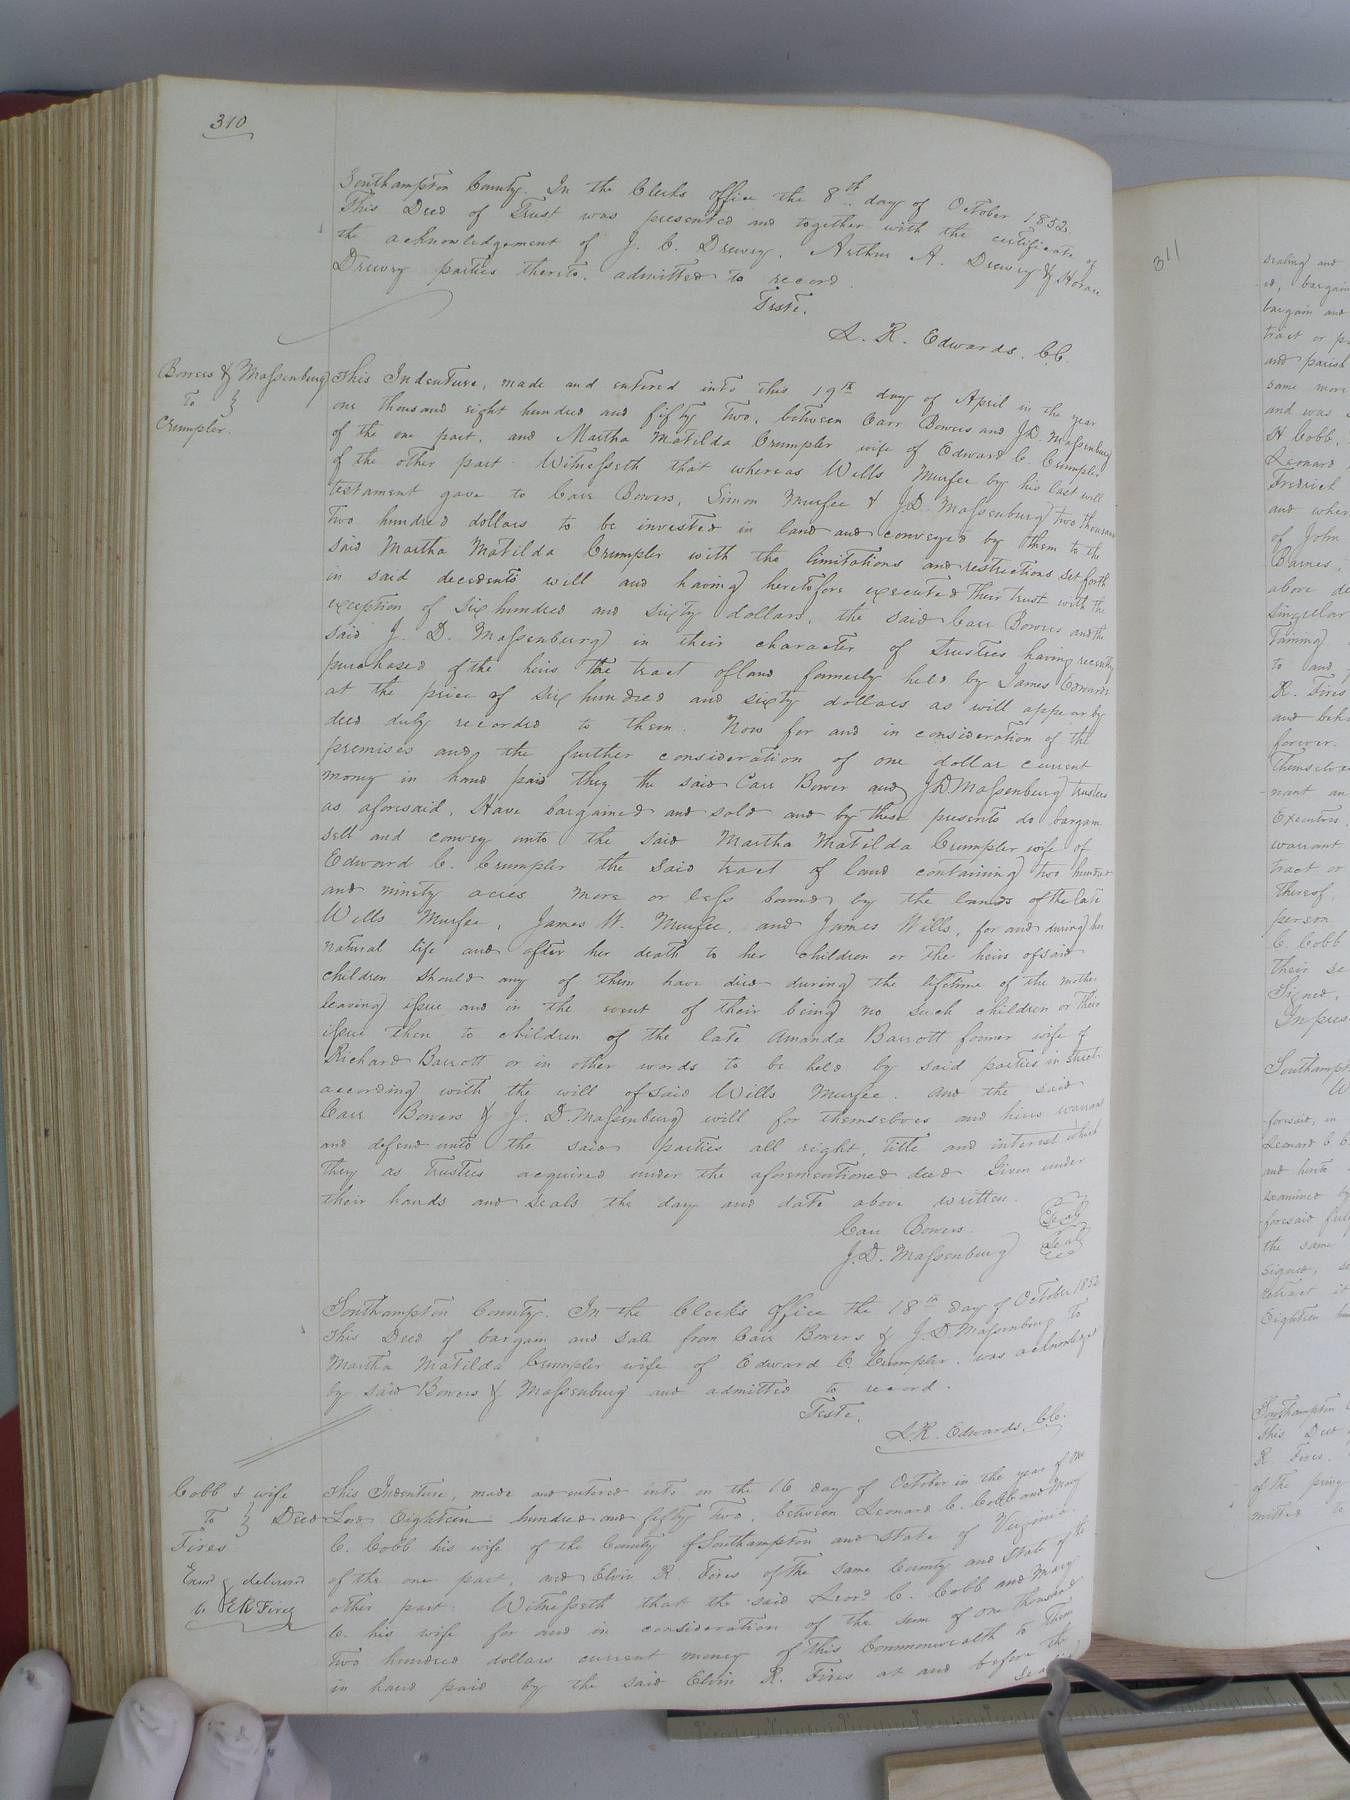 310
Southampton County. In the Clerks office the 8th day of October 1852
This Deed of Trust was presented and together with the certificate of
the acknowledgement of J. C. Drewry, Arthur A. Drewry & Horace
Drewry parties thereto, admitted to record.
Teste,
L. R. Edwards, CC.
Bowers & Massenburg
To
Crumpler.
This Indenture, made and entered into this 19th day of April in the year
one thousand eight hundred and fifty two, between Carr Bowers and J.D. Massenburg
of the one part, and Martha Matilda Crumpler wife of Edward C. Crumpler
of the other part. Witnesseth that whereas Wills Murfee by his last will
testament gave to Carr Bowers, Simon Murfee & J.D. Massenburg two thousand
two hundred dollars to be invested in land and conveyed by them to the
said Martha Matilda Crumpler with the limitations and restrictions set forth
in said decedents will and having heretofore executed their trust with the
exception of six hundred and sixty dollars, the said Carr Bowers and the
said J. D. Massenburg in their character of Trustees having recently
purchased of the heirs the tract of land formerly held by James Edwards
at the price of six hundred and sixty dollars as will appear by
deed duly recorded to them. Now for and in consideration of the
premises and the further consideration of one dollar current
money in hand paid they the said Carr Bower and J.D Massenburg trustees
as aforesaid, Have bargained and sold and by these presents do bargain
sell and convey unto the said Martha Matilda Crumpler wife of
Edward C. Crumpler the said tract of land containing two hundred
and ninety acres more or less bound by the lands of the late
Wills Murfee, James W. Murfee, and James Wills, for and during her
natural life and after her death to her children or the heirs of said
children should any of them have died during the lifetime of the mother
leaving issue and in the event of their being no such children or their
issue then to children of the late Amanda Barrott former wife of
Richard Barrott or in other words to be held by said parties in strict
according with the will of said Wills Murfee. And the said
Carr Bowers & J. D. Massenburg will for themselves and heirs warrant
and defend unto the said parties all right, title and interest which
they as Trustees acquired under the aforementioned deed Given under
their hands and seals the day and date above written.
Carr Bowers. Seal
J. D. Massenburg Seal
Southampton County. In the Clerk's Office the 18th day of October 1852
This Deed of bargain and sale from Carr Bowers & J. D Massenburg to
Martha Matilda Crumpler wife of Edward C. Crumpler was acknowledged
by said Bowers & Massenburg and admitted to record.
Teste,
L.R. Edwards, CC.
Cobb & wife
To Deed
Fires
Exmd & delivered
to ER Fires
This Indenture, made and entered into on the 16 day of October in the year of our
Lord Eighteen hundred and fifty Two, between Leonard C. Cobb and Mary
C. Cobb his wife of the County of Southampton and State of Virginia
of the one part, and Elvin R. Fires of the same County and State of the
other part: Witnesseth that the said Leond C. Cobb and Mary
C. his wife for and in consideration of the sum of one thousand
two hundred dollars current money of this Commonwealth to them
in hand paid by the said Elvin R. Fires at and before the
sealing
311
sealing and
ed, bargain
bargain and
tract or
and parish
same more
and was
H Cobb,
Leonard
Fredrick
and when
of John
Barnes,
above de
singular
taining
to and
R. Fires
and beh
forever.
themselves
nant an
Executors,
warrant
tract or
thereof,
person
C. Cobb
their se
Signed,
In pres
Southampt
foresaid, in
Leonard C
and hents
examined by
foresaid
the same
signed, se
retract it
Eighteen hun
Southampton
This Deed
R. Fires.
of the privy
mitted to